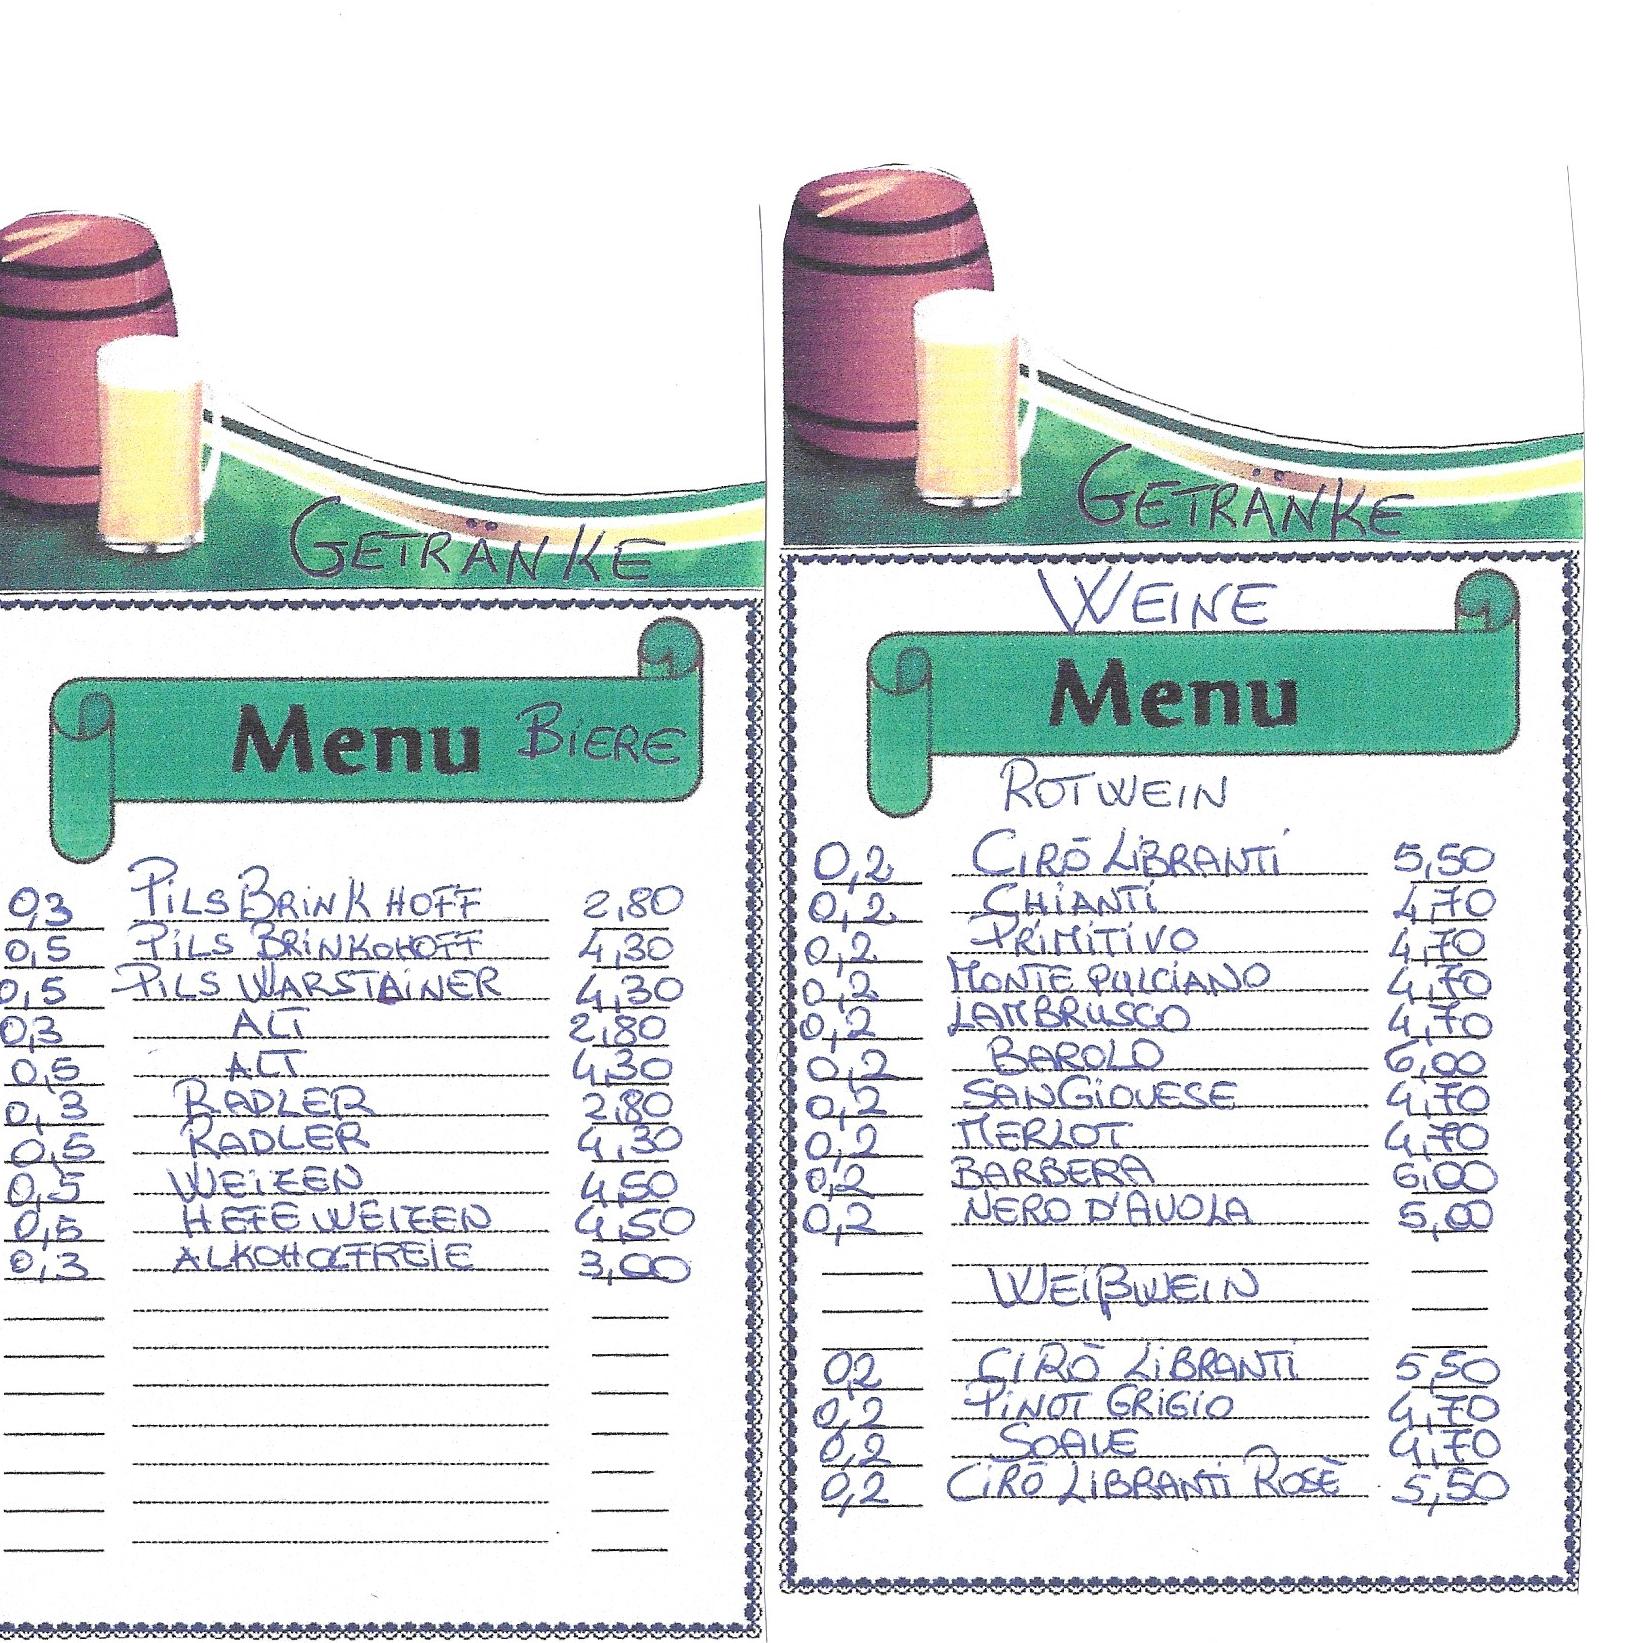 GETRÄNKE
Menu BIERE
0,3 PILS BRINKHOFF 2,80
0,5 PILS BRINKOHOFF 4,30
0,5 PILS WARSTAINER 4,30
0,3 ALT 2,80
0,5 ALT 4,30
0,3 RADLER 2,80
0,5 RADLER 4,30
0,5 WEIZEN 4,50
0,5 HEFE WEIZEN 4,50
0,3 ALKOHOLFREIE 3,00
GETRÄNKE
WEINE
Menu
ROTWEIN
0,2 CIRÒ LIBRANTI 5,50
0,2 CHIANTI 4,70
0,2 PRIMITIVO 4,70
0,2 MONTE PULCIANO 4,70
0,2 LAMBRUSCO 4,70
0,2 BAROLO 6,00
0,2 SANGIOVESE 4,70
0,2 MERLOT 4,70
0,2 BARBERA 6,00
0,2 NERO D'AVOLA 5,00
WEIßWEIN
0,2 CIRÒ LIBRANTI 5,50
0,2 PINOT GRIGIO 4,70
0,2 SOAVE 4,70
0,2 CIRÒ LIBRANTI ROSÈ 5,50